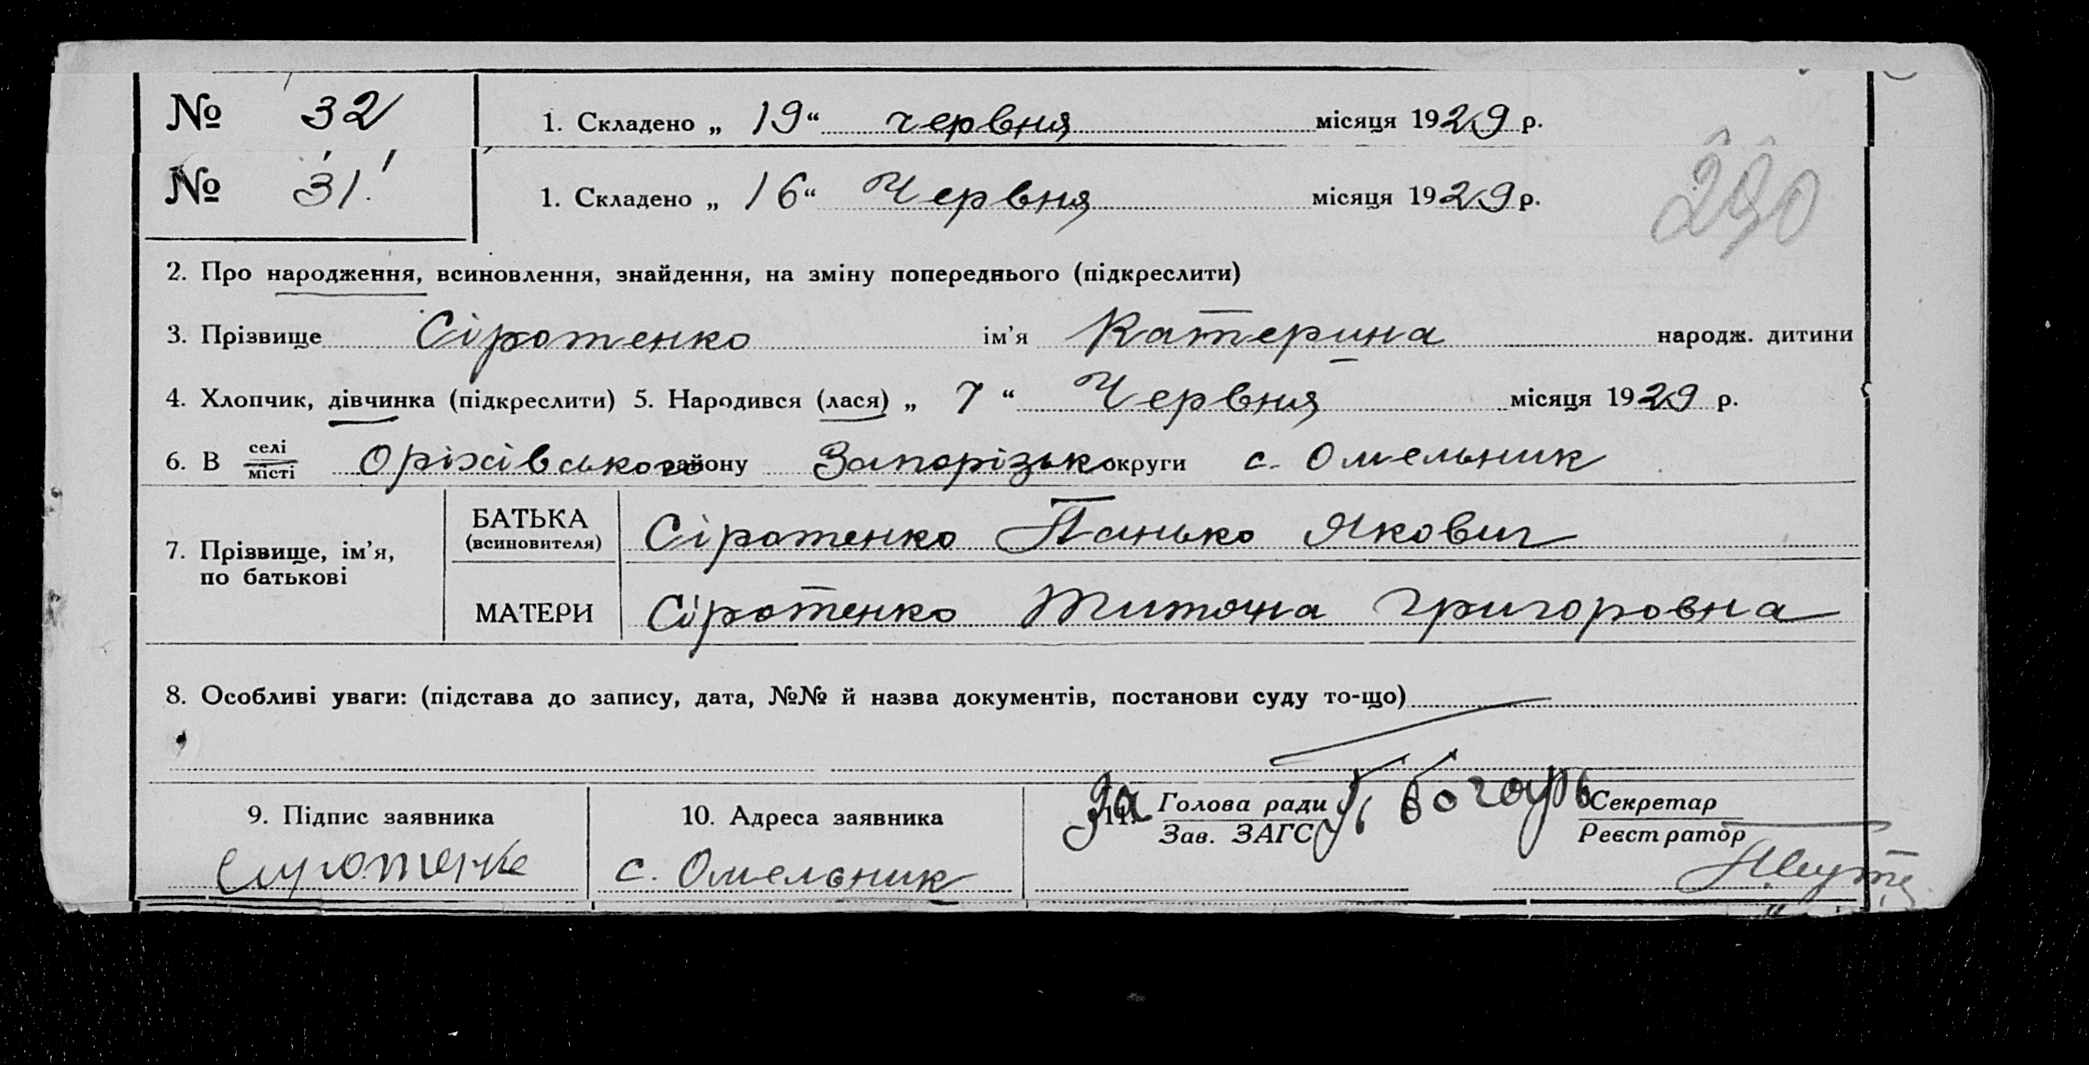 № 32 1. Складено „ 19 “ червня місяця 1929 р.
№ 31. 1. Складено „ 16 “ Червня місяця 1929 р.
290
2. Про народження, всиновлення, знайдення, на зміну попереднього (підкреслити)
3. Прізвище Сіротенко ім’я Катерина народж. дитини
4. Хлопчик, дівчинка (підкреслити) 5. Народився (лася) „ 7 “ Червня місяця 1929 р.
6. В селі місті Оріхівського району Запорізьк округи с. Омельник
7. Прізвище, ім’я, по батькові
БАТЬКА (всиновителя) Сіротенко Панько Якович
МАТЕРИ Сіротенко Григоровна
8. Особливі уваги: (підстава до запису, дата, №№ й назва документів, постанови суду то-що)
9. Підпис заявника 10. Адреса заявника За Голова ради Секретар
Зав. ЗАГС Реєстратор
с. Омельник